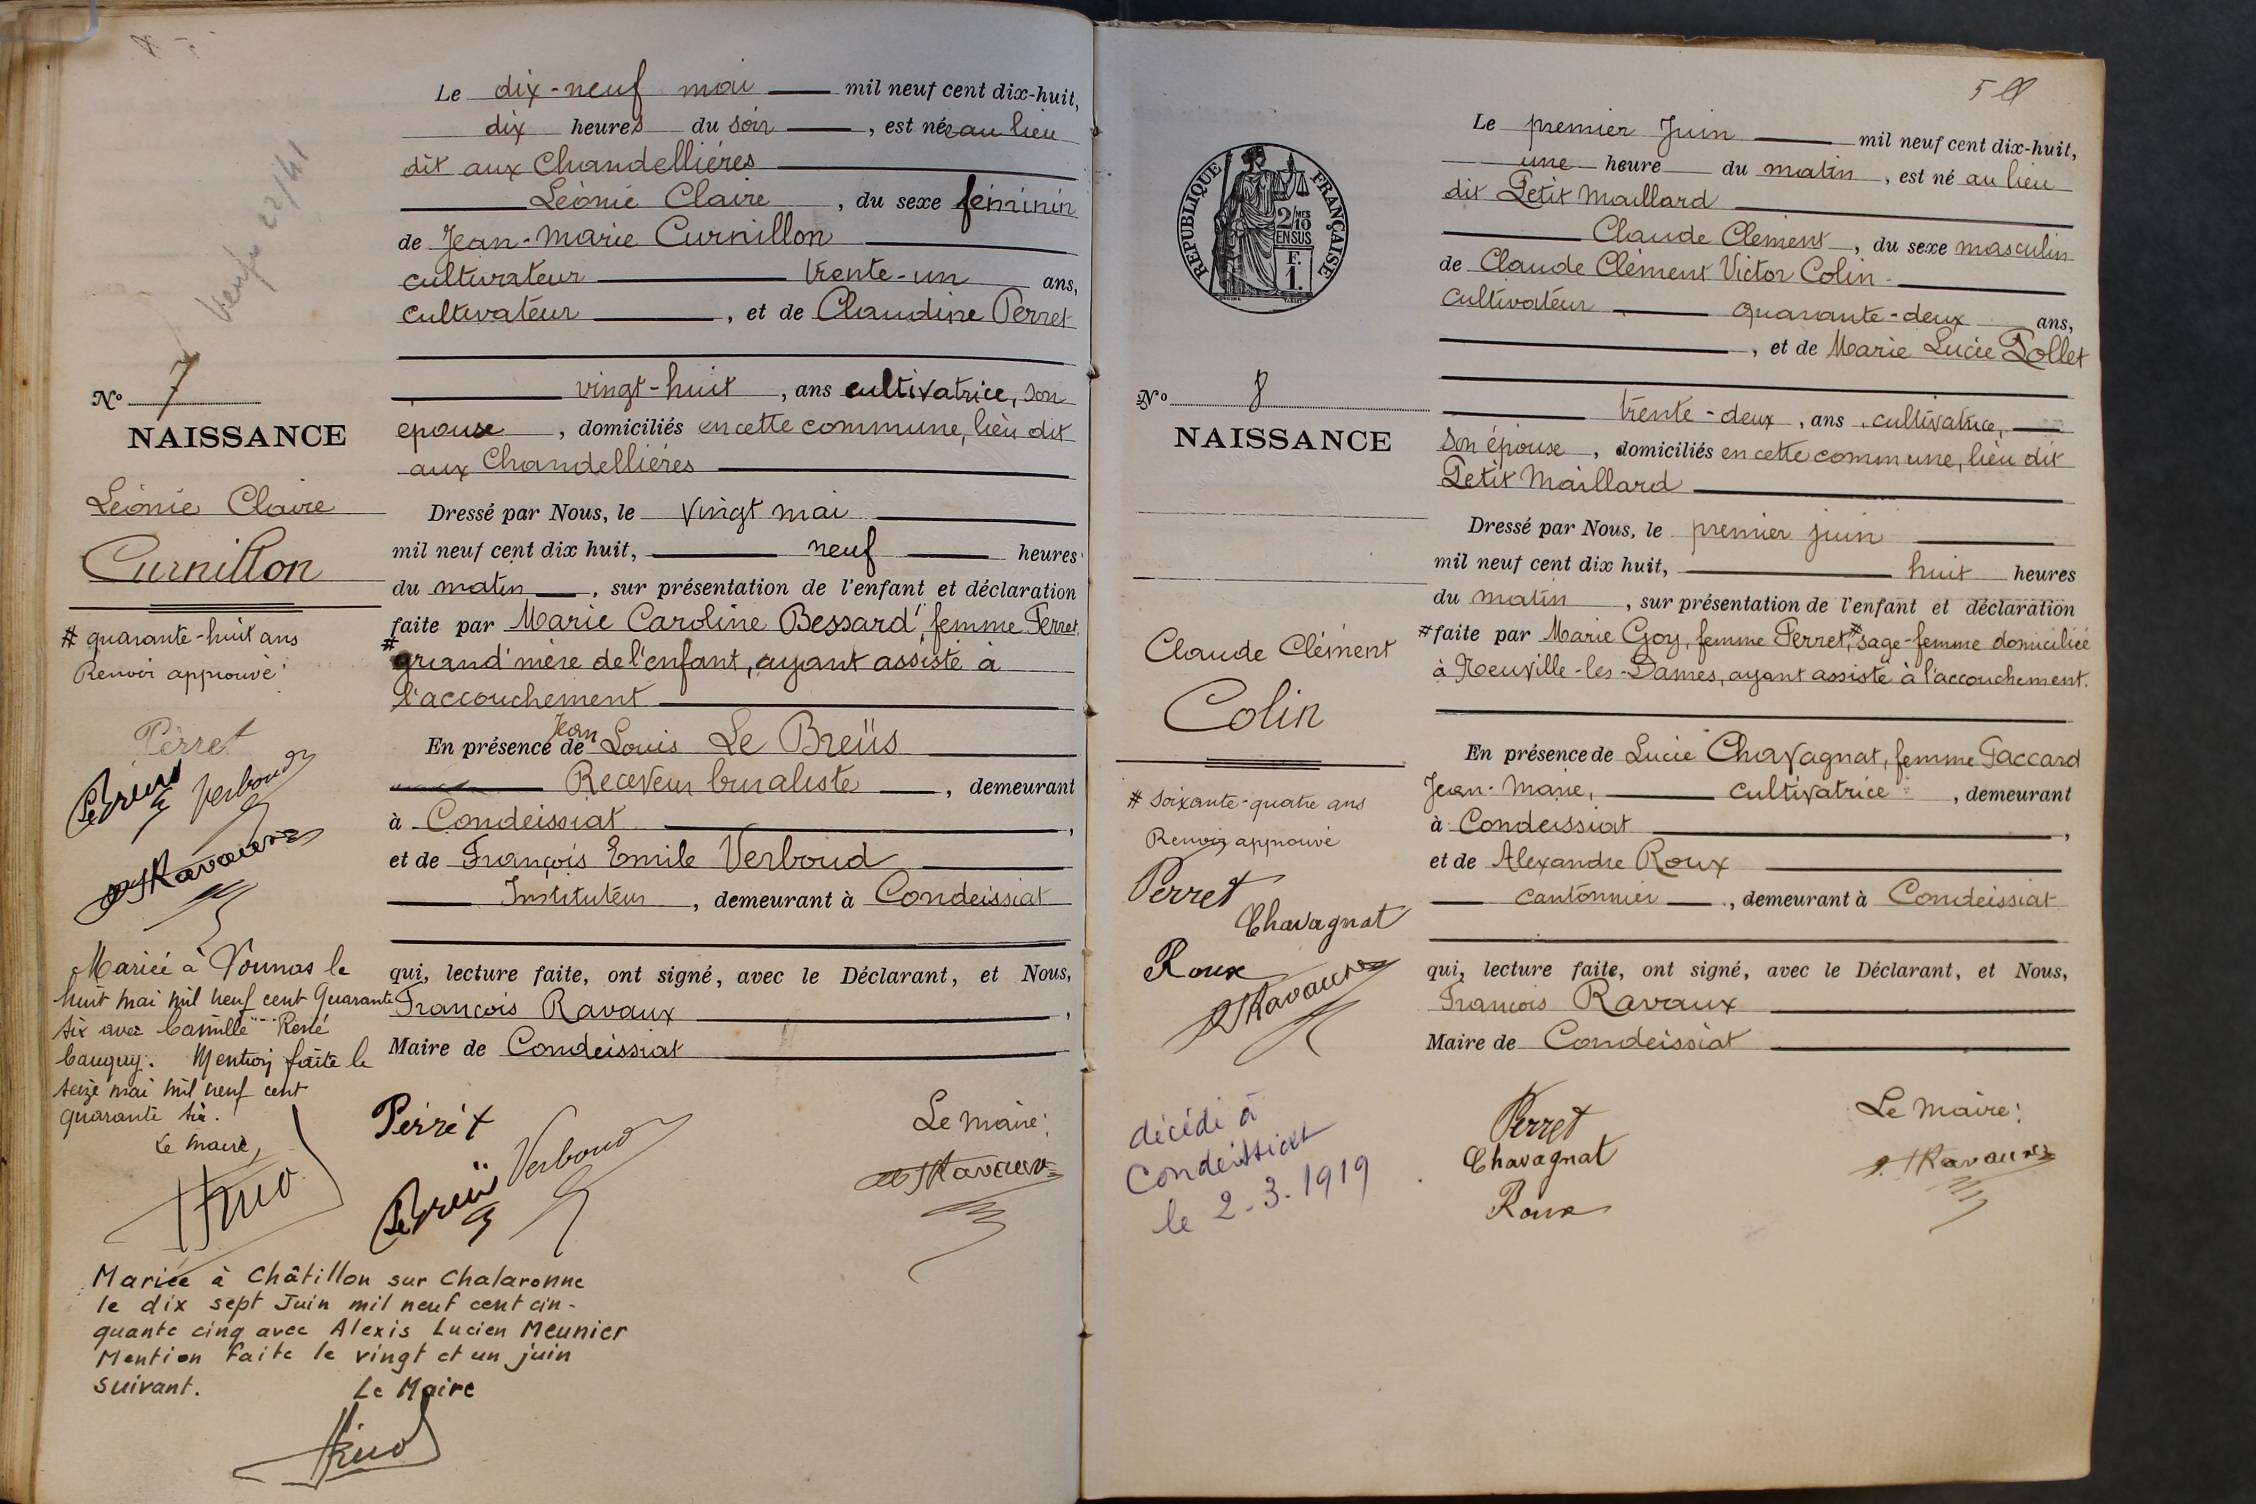 Le dix-neuf mai mil neuf cent dix-huit,
dix heures du soir, est née au lieu
dit aux Chandelliéres
Léonie Claire, du sexe féminin
de Jean-Marie Curnillon
cultivateur trente-un ans,
cultivateur, et de Claudine Perret
vingt-huit, ans cultivatrice, son
épouse, domiciliés en cette commune, lieu dit
aux Chandelliéres
Dressé par Nous, le vingt mai
mil neuf cent dix huit, neuf heures
du matin, sur présentation de l'enfant et déclaration
faite par Marie Caroline Bessard, femme Perret,
# grand'mère de l'enfant, ayant assisté à
l'accouchement
En présence de Jean Louis Le Breüs
Receveur buraliste, demeurant
à Condeissiat,
et de François Emile Verboud
Instituteur, demeurant à Condeissiat
qui, lecture faite, ont signé, avec le Déclarant, et Nous,
François Ravaux,
Maire de Condeissiat
Perret
Le Maire:
Le Breüs Verboud
Ravaux
No 7
NAISSANCE
Léonie Claire
Curnillon
# quarante-huit ans
Renvoi approuvé
Perret
Le Breüs Verboud
Ravaux
Mariée à Vonnas le
huit mai mil neuf cent quarante
six avec Camille René
Cauguy. Mention faite le
seize mai mil neuf cent
quarante six.
Le maire,
Mariée à Châtillon sur Chalaronne
le dix sept Juin mil neuf cent cin-
quante cinq avec Alexis Lucien Meunier
Mention faite le vingt et un juin
suivant.
Le Maire
5
RÉPUBLIQUE FRANÇAISE
2/10 MES
EN SUS
F.
1.
Le premier Juin mil neuf cent dix-huit,
une heure du matin, est né au lieu
dit Petit Maillard
Claude Clément, du sexe masculin
de Claude Clément Victor Colin
cultivateur quarante-deux ans,
, et de Marie Lucie Pollet
trente-deux, ans, cultivatrice,
son épouse, domiciliés en cette commune, lieu dit
Petit Maillard
Dressé par Nous, le premier juin
mil neuf cent dix huit, huit heures
du matin, sur présentation de l'enfant et déclaration
# faite par Marie Goy, femme Perret, # sage-femme domiciliée
à Neuville-les-Dames, ayant assisté à l'accouchement.
En présence de Lucie Chavagnat, femme Paccard
Jean-Marie, cultivatrice, demeurant
à Condeissiat,
et de Alexandre Roux
cantonnier, demeurant à Condeissiat
qui, lecture faite, ont signé, avec le Déclarant, et Nous,
François Ravaux
Maire de Condeissiat
Perret
Le Maire:
Chavagnat
Ravaux
Roux
No 8
NAISSANCE
Claude Clément
Colin
# soixante-quatre ans
Renvoi approuvé
Perret
Chavagnat
Roux
Ravaux
décédé à
Condeissiat
le 2-3-1919